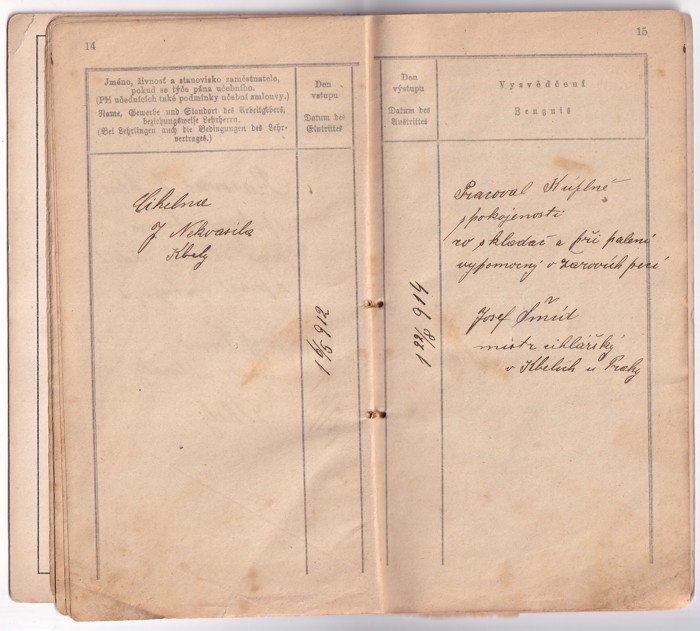 14
Jméno, živnosť a stanovisko zaměstnatele,
pokud se týče pána učebního.
(Při učednících také podmínky učební smlouvy.)
Name, Gewerbe und Standort des Arbeitgebers,
beziehungsweise Lehrherrn.
(Bei Lehrlingen auch die Bedingungen des Lehr-
vertrages.)
Den
vstupu
Datum des
Eintrittes
Cihelna
J. Nekvasila
Kbely
1 6/5 912
15
Den
výstupu
Datum des
Austrittes
Vysvědčení
Zeugnis
Pracoval K úplně
spokojenosti
co skladač a při palení
vypomocný v žarovích pecí
1 22/8 914
Josef Šmíd
mistr cihlářský
v Kbelích u Prahy